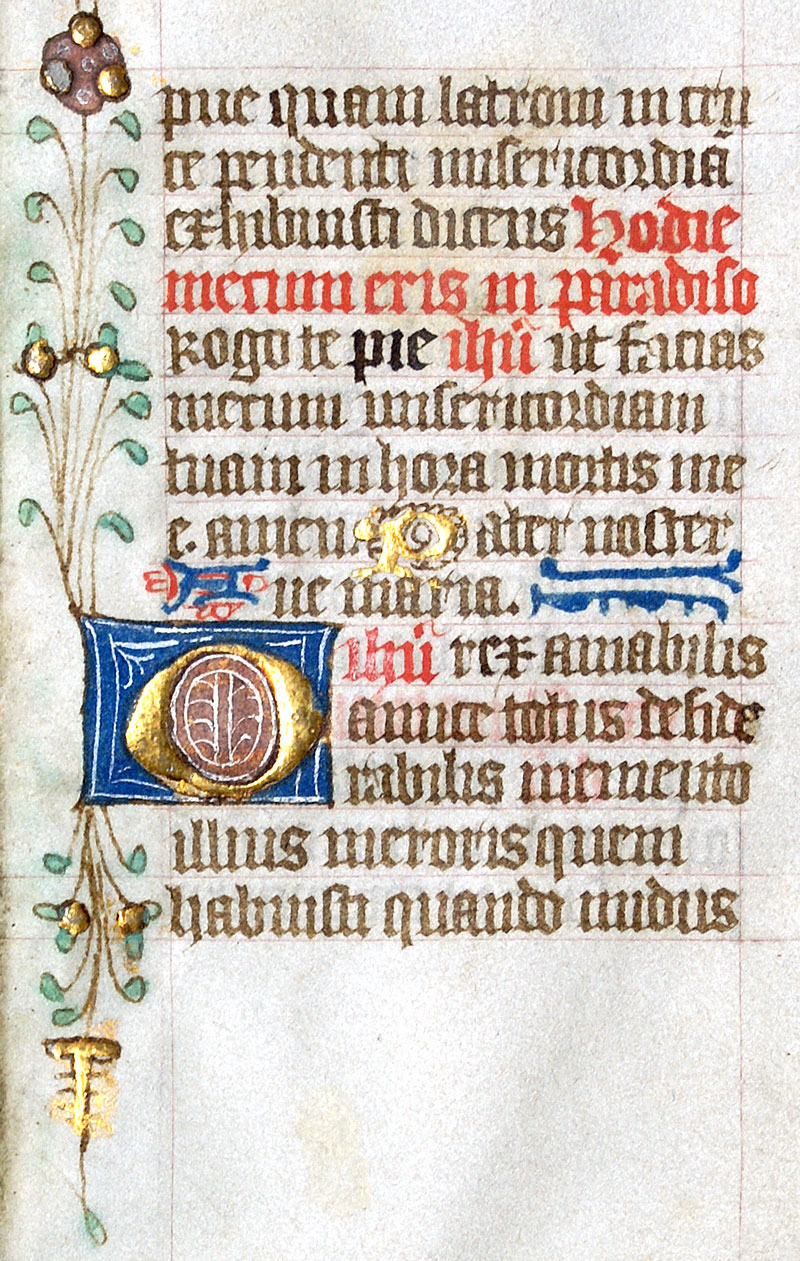 pue quam latroni in cru
ce pendenti misericordiã
exhibuisti dicens Hodie
mecum eris in paradiso
Rogo te pie ihũ ut facias
mecum misericordiam
tuam in hora mortis me
e. amen. Pater noster
Aue maria.
O ihũ rex amabilis
amice totus deside
rabilis memento
illius meroris quem
habuisti quando nudus